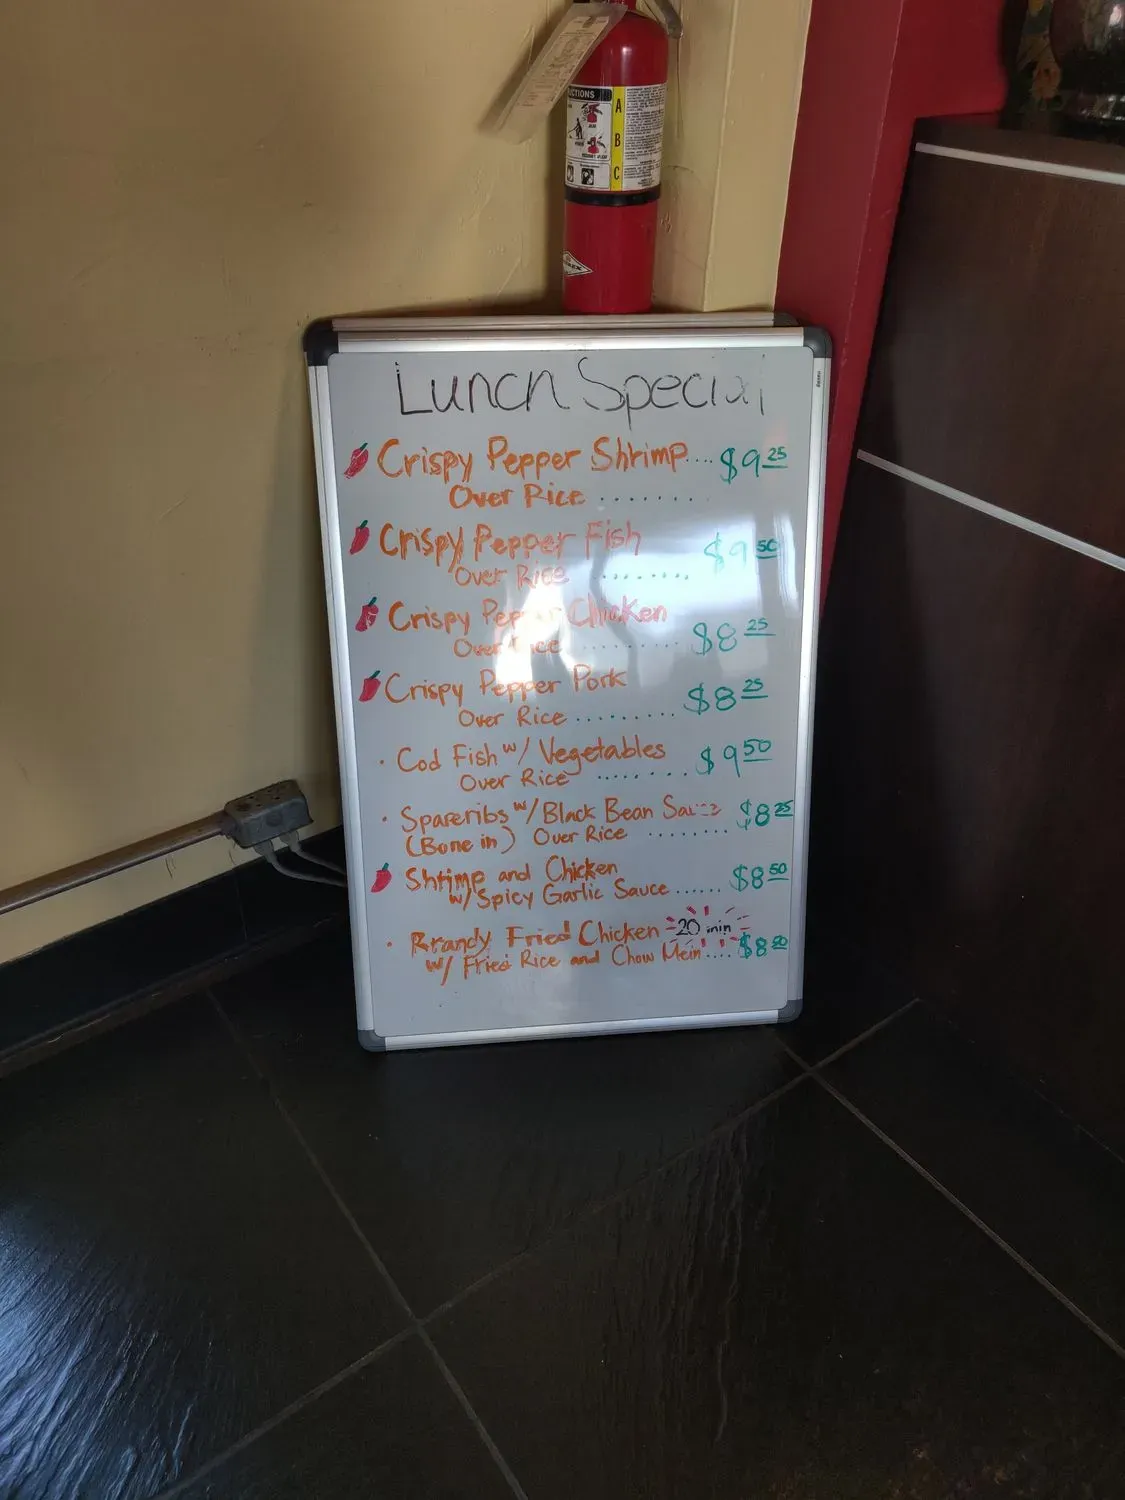 CTIONS
A
B
C
Lunch Special
Crispy Pepper Shrimp.... $9 25
Over Rice ........
Crispy Pepper Fish $9 50
Over Rice ........
Crispy Pepper Chicken $8 25
Over Rice ........
Crispy Pepper Pork $8 25
Over Rice .........
· Cod Fish w/ Vegetables $9 50
Over Rice ........
· Spareribs w/ Black Bean Sauce $8 25
(Bone in) Over Rice ........
Shrimp and Chicken $8 50
w/ Spicy Garlic Sauce ......
· Brandy Fried Chicken 20 min
w/ Fried Rice and Chow Mein .... $8 50